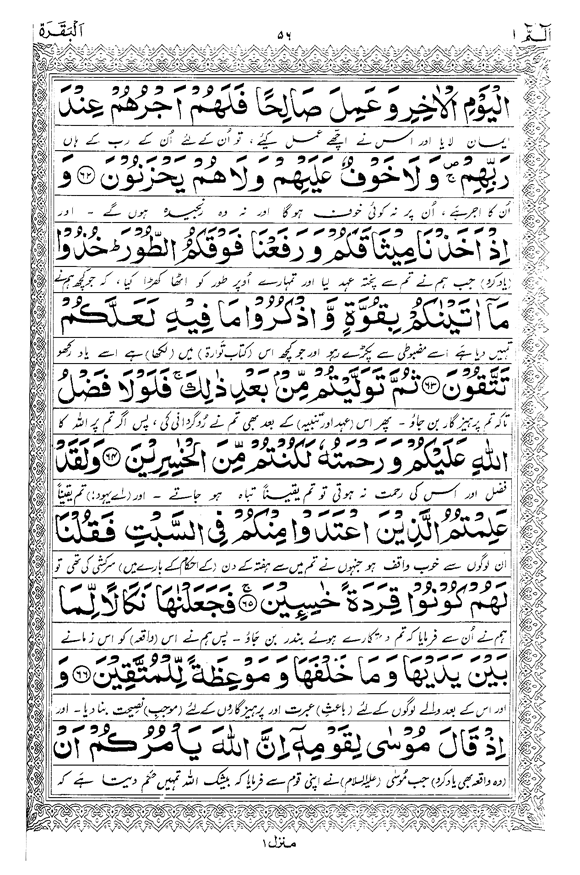 الٓمّٓ ١ ٥٦ اَلْبَقَرَة
الْيَوْمِ الْاٰخِرِ وَ عَمِلَ صَالِحًا فَلَهُمْ اَجْرُهُمْ عِنْدَ
ایمان لایا اور اس نے اچھے عمل کیے، تو اُن کے لئے اُن کے رب کے ہاں
رَبِّهِمْ ۪ۚ وَ لَا خَوْفٌ عَلَيْهِمْ وَلَا هُمْ يَحْزَنُوْنَ ﴿۶۲﴾ وَ
اُن کا اجر ہے، اُن پر نہ کوئی خوف ہوگا اور نہ وہ رنجیدہ ہوں گے - اور
اِذْ اَخَذْنَا مِيْثَاقَكُمْ وَ رَفَعْنَا فَوْقَكُمُ الطُّوْرَ ؕ خُذُوْا
(یاد کرو) جب ہم نے تم سے پختہ عہد لیا اور تمہارے اُوپر طور کو اٹھا کھڑا کیا، کہ جو کچھ ہم نے
مَاۤ اٰتَيْنٰكُمْ بِقُوَّةٍ وَّ اذْكُرُوْا مَا فِيْهِ لَعَلَّكُمْ
تمہیں دیا ہے اسے مضبوطی سے پکڑے رہو اور جو کچھ اس (کتاب تورات) میں (لکھا) ہے اسے یاد رکھو
تَتَّقُوْنَ ﴿۶۳﴾ ثُمَّ تَوَلَّيْتُمْ مِّنْۢ بَعْدِ ذٰلِكَ ۚ فَلَوْ لَا فَضْلُ
تاکہ تم پرہیزگار بن جاؤ - پھر اس (عہد اور تنبیہ) کے بعد بھی تم نے رُوگردانی کی، پس اگر تم پر اللہ کا
اللّٰهِ عَلَيْكُمْ وَ رَحْمَتُهٗ لَكُنْتُمْ مِّنَ الْخٰسِرِيْنَ ﴿۶۴﴾ وَلَقَدْ
فضل اور اس کی رحمت نہ ہوتی تو تم یقیناً تباہ ہو جاتے - اور (اے یہود!) تم یقیناً
عَلِمْتُمُ الَّذِيْنَ اعْتَدَوْا مِنْكُمْ فِي السَّبْتِ فَقُلْنَا
ان لوگوں سے خوب واقف ہو جنہوں نے تم میں سے ہفتہ کے دن (کے احکام کے بارے میں) سرکشی کی تھی تو
لَهُمْ كُوْنُوْا قِرَدَةً خٰسِـِٕيْنَ ﴿۶۵﴾ۚ فَجَعَلْنٰهَا نَكَالًا لِّمَا
ہم نے اُن سے فرمایا کہ تم دھتکارے ہوئے بندر بن جاؤ - پس ہم نے اس (واقعہ) کو اس زمانے
بَيْنَ يَدَيْهَا وَ مَا خَلْفَهَا وَ مَوْعِظَةً لِّلْمُتَّقِيْنَ ﴿۶۶﴾ وَ
اور اس کے بعد والے لوگوں کے لئے (باعثِ) عبرت اور پرہیزگاروں کے لئے (موجبِ) نصیحت بنا دیا - اور
اِذْ قَالَ مُوْسٰى لِقَوْمِهٖۤ اِنَّ اللّٰهَ يَاْمُرُكُمْ اَنْ
(وہ واقعہ بھی یاد کرو) جب مُوسٰی (علیہ السلام) نے اپنی قوم سے فرمایا کہ بیشک اللہ تمہیں حکم دیتا ہے کہ
منزل ۱